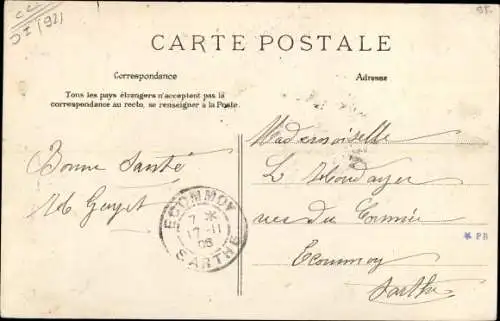 CARTE POSTALE
Correspondance
Adresse
Tous les pays étrangers n'acceptent pas la
correspondance au recto, se renseigner à la Poste.
Bonne Santé
ECOMMOY
7 *
17 -11
06
SARTHE
Mademoiselle
L
rue du
Ecommoy
Sarthe
* PB